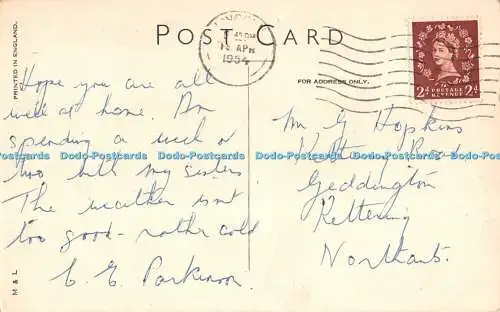 POST CARD
PRINTED IN ENGLAND.
FOR ADDRESS ONLY.
M & L
45 PM
APR
1954
POSTAGE
REVENUE
2d 2d
Hope you are all
well at home. Am
spending a week or
two with my sisters
The weather isn't
too good - rather cold
C. E. Parkinson
Mr. G Hopkins
Road
Geddington
Kettering
Northants.
Dodo-Postcards Dodo-Postcards Dodo-Postcards Dodo-Postcards Dodo-Postcards